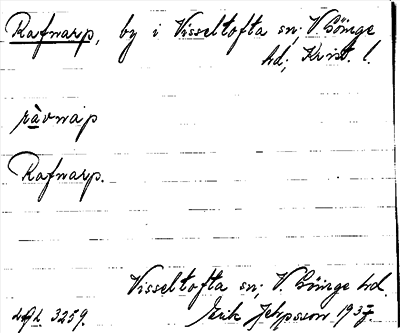 Rafnarp, by i Visseltofta sn; V. Göinge
hd; Krist. l.
ràvnap
Rafnarp.
Visseltofta sn; V. Göinge hd.
3259. Erik Jeppsson 1937